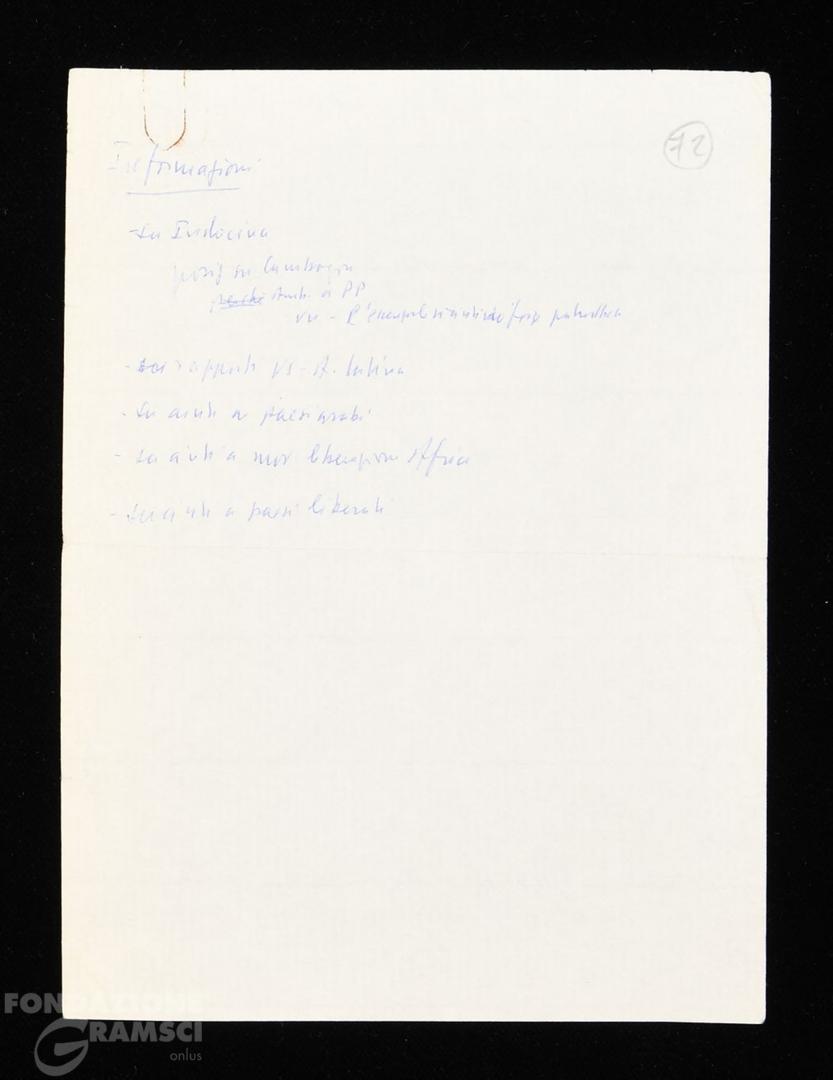 72
Informazioni
- Su Indocina
posiz su Cambogia
Amb. a PP
- su rapporti US-A. latina
- su aiuti a paesi arabi
- su aiuti a mov liberazione Africa
- su aiuti a paesi liberati
FONDAZIONE
GRAMSCI
onlus